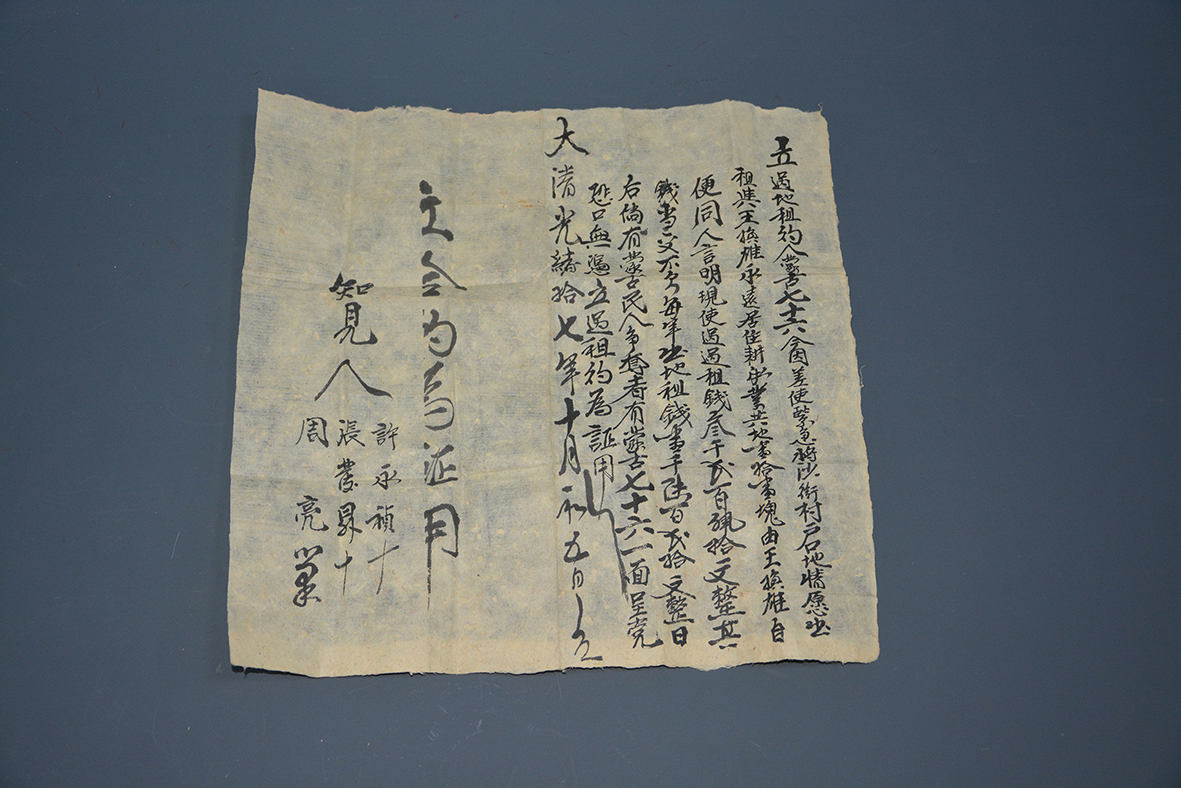 立過地租約人蒙古七十六今因差使緊急將沙街村戶口地情愿出
租與王換雄永遠居住耕永業共地壹拾壹塊由王換雄自
便同人言明現使過過租錢叁千弍百玖拾文整其
錢當交不欠每年出地租錢壹千陸百弍拾文整日
后倘有蒙古民人爭奪者有蒙古七十六一面呈党
恐口無憑立過租約為証用
大清光緒拾七年十月初五日立
立合約為証用
知見人
許永禎十
張發昇十
周亮筆